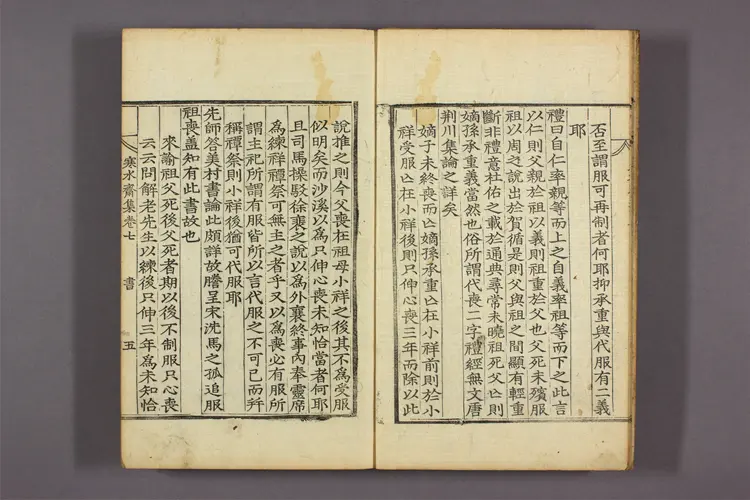 否至謂服可再制者何耶抑承重與代服有二義
耶
禮曰自仁率親等而上之自義率祖等而下之此言
以仁則父親於祖以義則祖重於父也父死未殯服
祖以周之說出於賀循是則父與祖之間顯有輕重
斷非禮意杜佑之載於通典尋常未曉祖死父亡則
嫡孫承重義當然也俗所謂代喪二字禮經無文唐
荆川集論之詳矣
嫡子未終喪而亡嫡孫承重亡在小祥前則於小
祥受服亡在小祥後則只伸心喪三年而除以此
說推之則今父喪在祖母小祥之後其不為受服
似明矣而沙溪以為只伸心喪未知恰當者何耶
且司馬操駁徐襄之說以為外襄終事內奉靈席
為練祥禫祭可無主之者乎又以為喪必有服所
謂主祀所謂有服皆所以言代服之不可已而并
稱禫祭則小祥後猶可代服耶
先師答美村書論此頗詳故謄呈宋洗馬之孤追服
祖喪蓋知有此書故也
來諭祖父死後父死者期以後不制服只心喪
云云問解老先生以練後只伸三年為未知恰
寒水齋集卷七
書
五